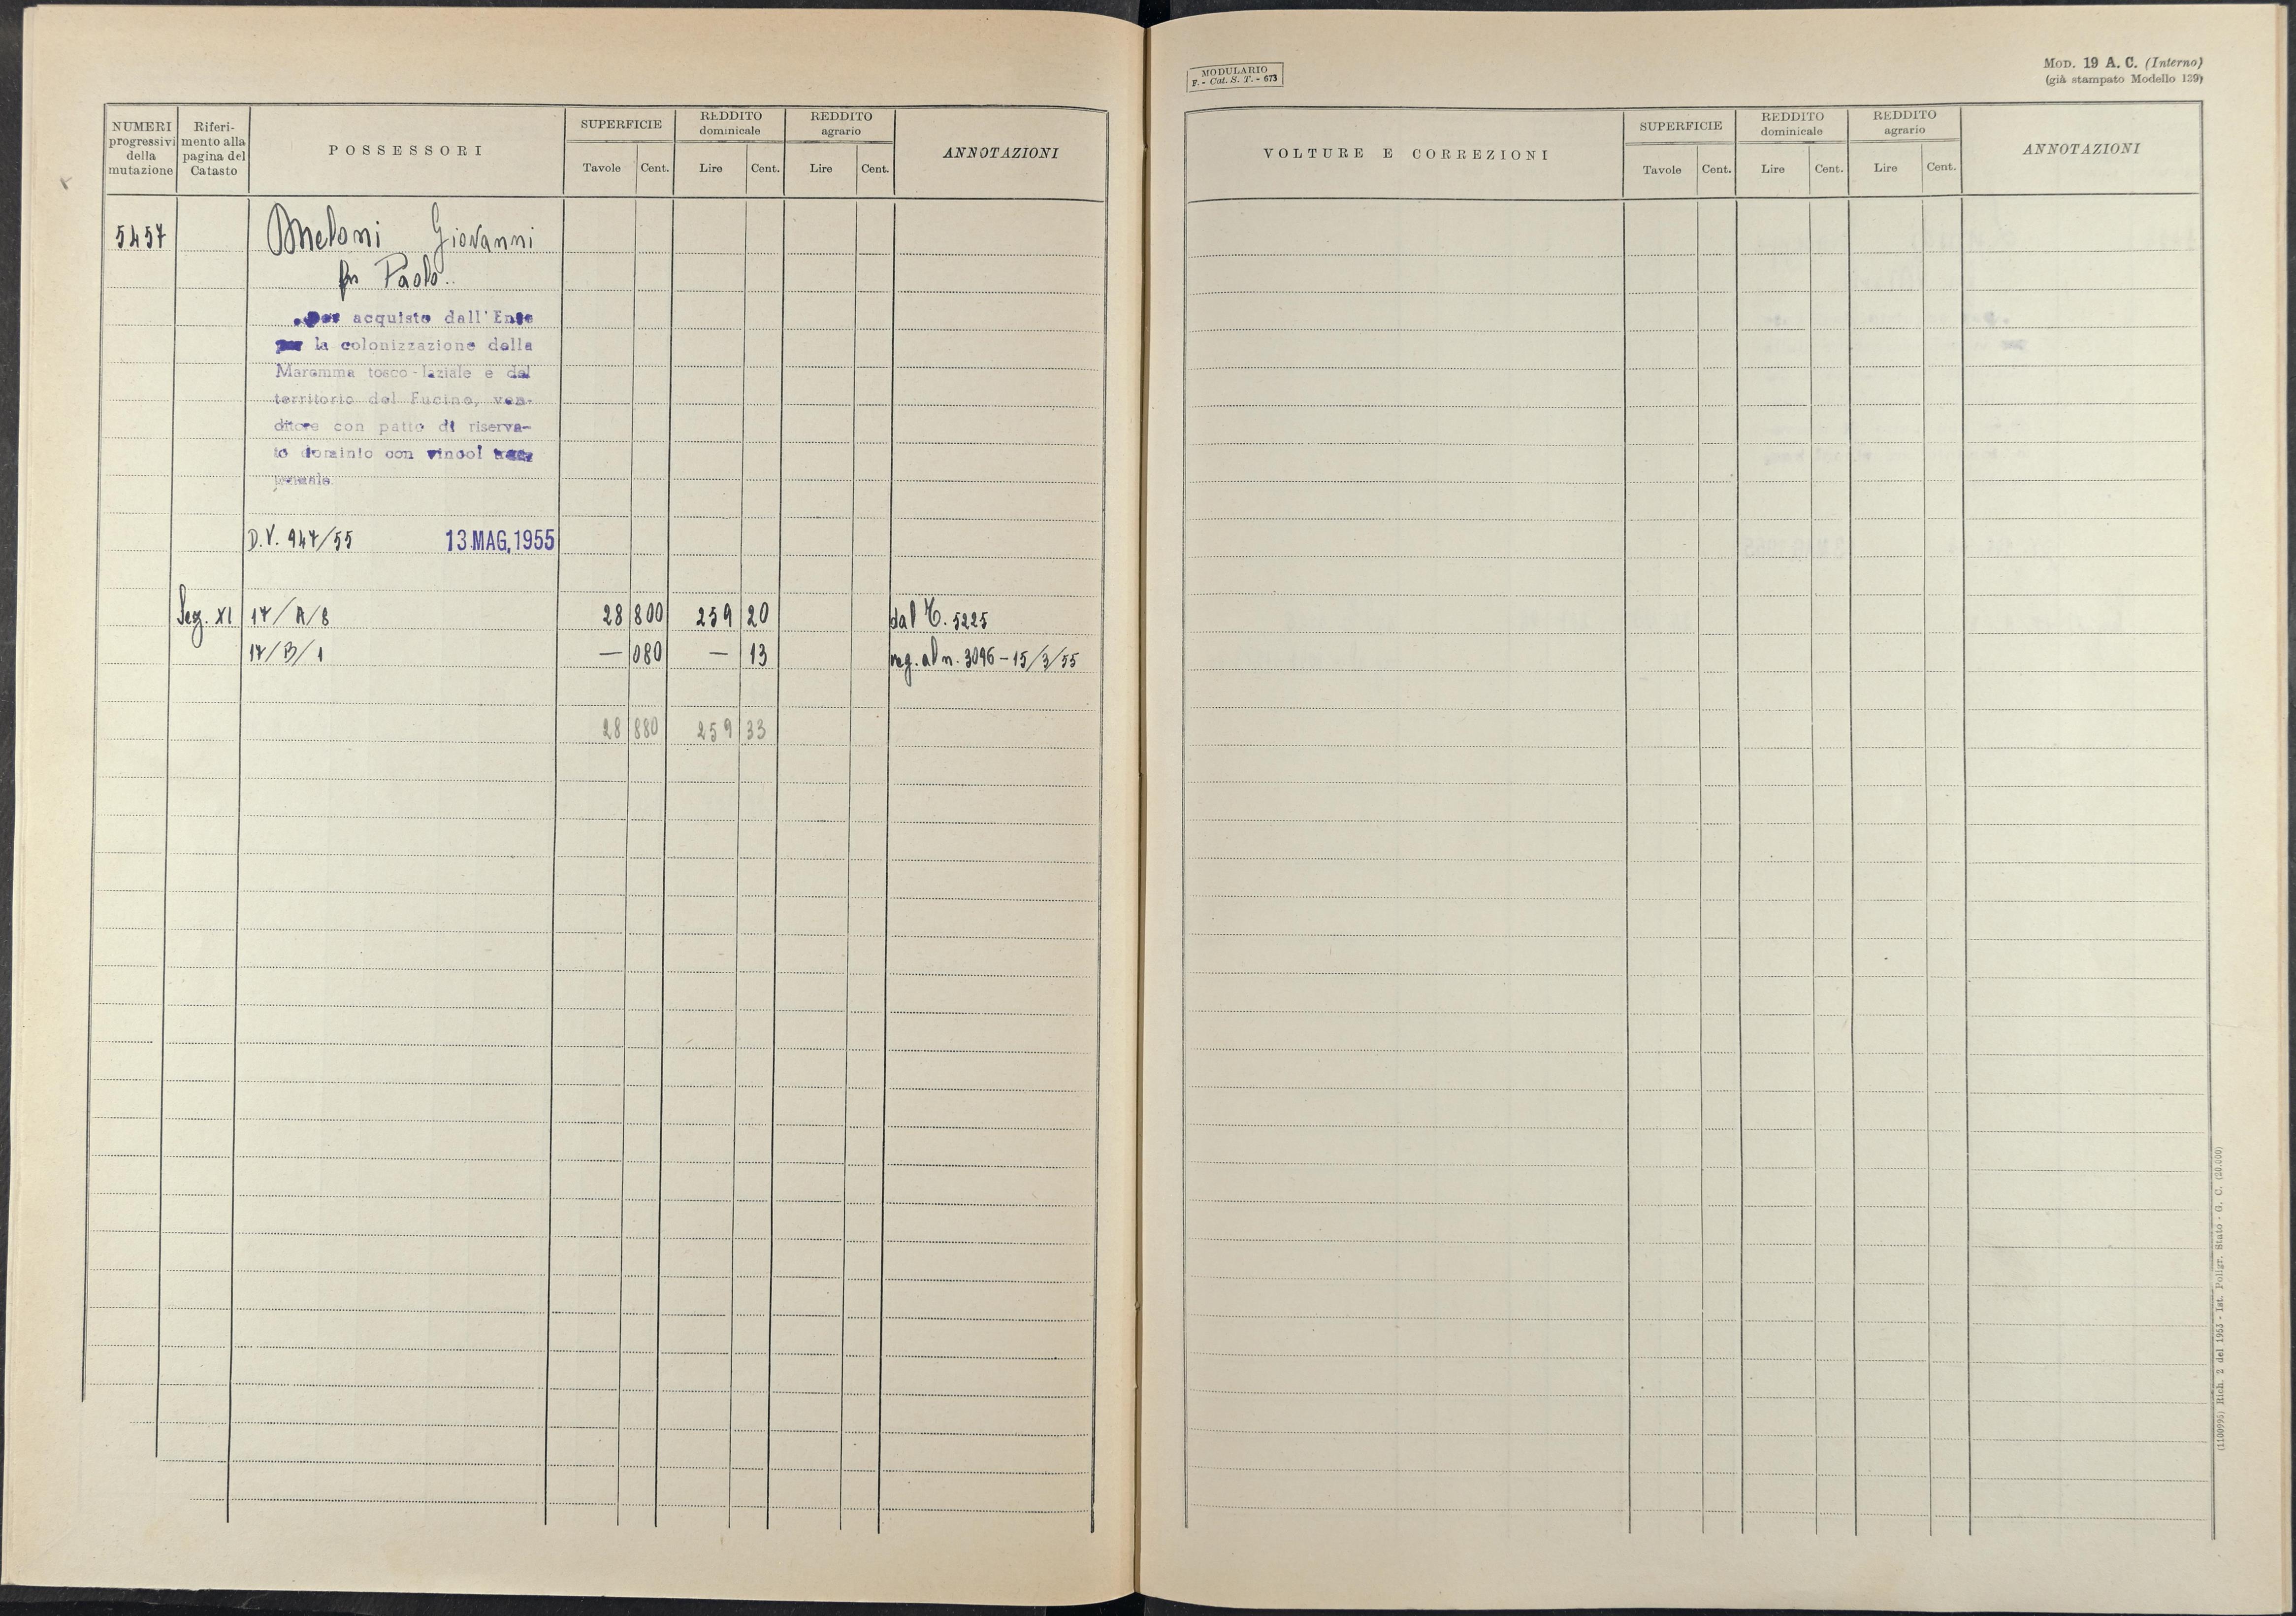 NUMERI progressivi della mutazione
Riferimento alla pagina del Catasto
POSSESSORI
SUPERFICIE
Tavole Cent.
REDDITO dominicale
Lire Cent.
REDDITO agrario
Lire Cent.
ANNOTAZIONI
5457 Meloni Giovanni
fu Paolo
per acquisto dall'Ente
per la colonizzazione della
Maremma tosco-laziale e del
territorio del Fucino, ven-
ditore con patto di riserva-
to dominio con vincol
D.V. 947/55 13 MAG. 1955
Sez. XI 17/A/8 28 800 259 20 dal C. 5225
17/B/1 — 080 — 13 reg. al n. 3096 - 15/3/55
28 880 259 33
MODULARIO
F. - Cat. S. T. - 673
MOD. 19 A. C. (Interno)
(già stampato Modello 139)
VOLTURE E CORREZIONI
SUPERFICIE
Tavole Cent.
REDDITO dominicale
Lire Cent.
REDDITO agrario
Lire Cent.
ANNOTAZIONI
(1100995) Rich. 2 del 1953 - Ist. Poligr. Stato - G. C. (20.000)